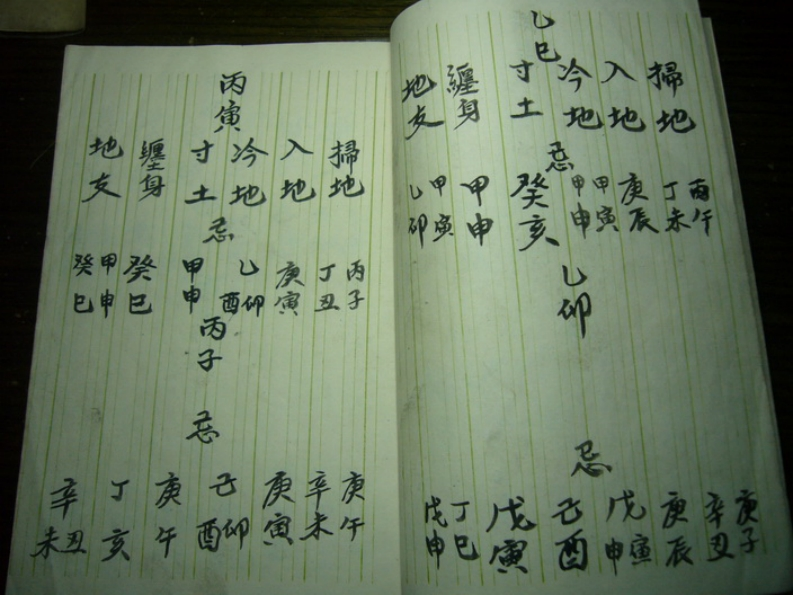 乙巳
掃地
入地
冷地
寸土
纏身
地支
忌
丙午
丁未
庚辰
甲寅
甲申
癸亥
甲申
甲寅
乙卯
乙卯
忌
庚子
辛丑
庚辰
戊寅申
己酉
戊寅
丁巳
戊申
丙寅
掃地
入地
冷地
寸土
纏身
地支
忌
丙子
丁丑
庚寅
乙卯酉
甲申
癸巳
甲申
癸巳
丙子
忌
庚午
辛未
庚寅
己卯酉
庚午
丁亥
辛丑未